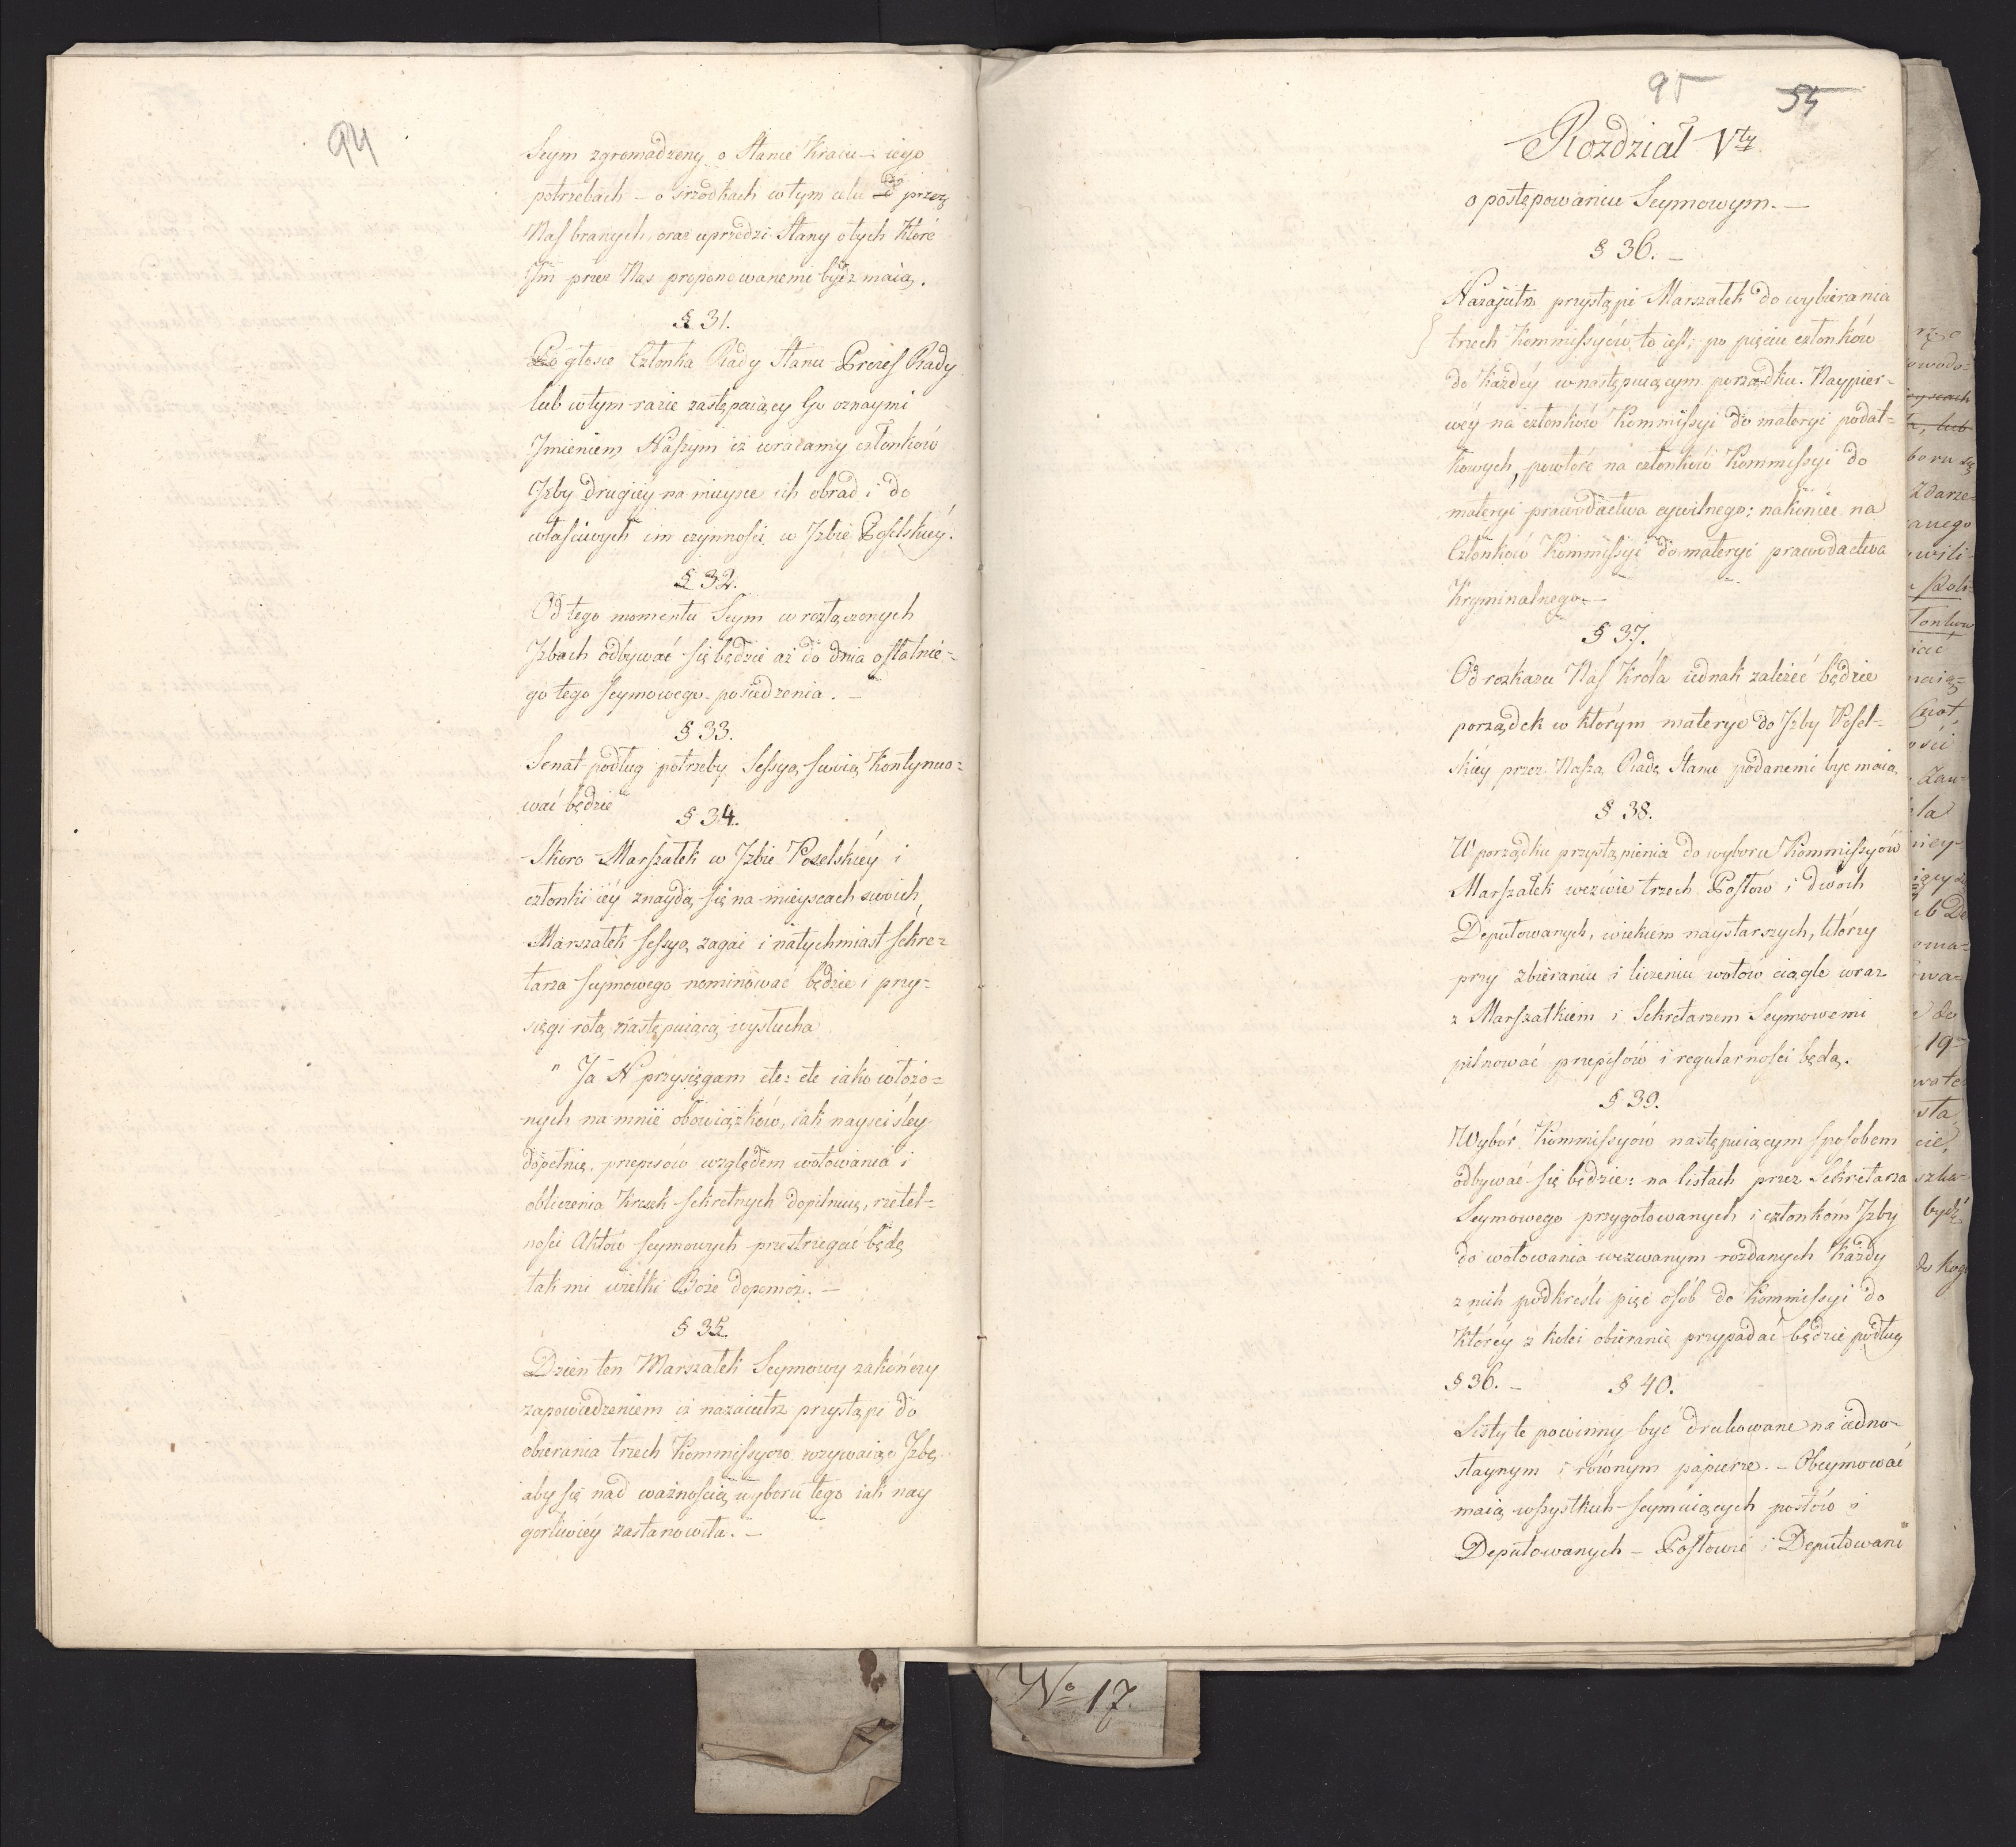 94
Seym zgromadzony o Stanie Kraiu – iego
potrzebach – o srzodkach w tym celu przez
Nas branych, oraz uprzedzi Stany o tych które
Im przez Nas proponowanemi bydź maią.
§ 31.
Po głosie Członka Rady Stanu Prezes Rady
lub w tym razie zastępuiący Go oznaymi
Imieniem Naszym iż wracamy członków
Izby drugiéy na mieysce ich obrad i do
właściwych im czynności w Izbie Poselskiéy.
§ 32.
Od tego momentu Seym w rozłączonych
Izbach odbywać się będzie aż do dnia ostatnie=
go tego seymowego posiedzenia. –
§ 33.
Senat podług potrzeby Sessyą swoią kontynuo=
wać będzie
§ 34.
Skoro Marszałek w Izbie Poselskiéy i
członki iéy znaydą się na mieyscach swoich,
Marszałek sessyą zagai i natychmiast sekre=
tarza seymowego nominować będzie i przy=
sięgi rotę następuiącą wysłucha
" Ja N przysięgam etc: etc iako włożo=
nych na mnie obowiązków, iak nayściśley
dopełnię, przepisów względem wotowania i
obliczenia kresek sekretnych dopilnuię, rzetel=
ności Aktów seymowych przestrzegać będę
tak mi wielki Boże dopomoż. –
§ 35.
Dzień ten Marszałek Seymowy zakończy
zapowiedzeniem iż nazaiutrz przystąpi do
obierania trzech Kommissyów wzywaiąc Izbę
aby się nad ważnością wyboru tego iak nay
gorliwiéy zastanowiła. –
95
54
Rozdział Vty
o postępowaniu Seymowym. –
§ 36. –
Nazajutrz przystąpi Marszałek do wybierania
trzech Kommissyów, to iest; po pięciu członków
do każdéy w następuiącym porządku. Naypier=
wéy na członków Kommissyi do materyi podat=
kowych, powtóre na członków Kommissyi do
materyi prawodactwa cywilnego; nakoniec na
Członków Kommissyi do materyi prawodactwa
Kryminalnego. –
§ 37.
Od rozkazu Nas Króla iednak zależeć będzie
porządek w którym materye do Izby Posel=
skiéy przez Naszą Radę Stanu podanemi być maią
§ 38.
W porządku przystąpienia do wyboru Kommissyów
Marszałek wezwie trzech Posłów i dwóch
Deputowanych, wiekiem naystarszych, którzy
przy zbieraniu i liczeniu wotów ciągle wraz
z Marszałkiem i Sekretarzem Seymowemi
pilnować przepisów i regularności będą.
§ 39.
Wybór Kommissyów następuiącym sposobem
odbywać się będzie: na listach przez Sekretarza
Seymowego przygotowanych i członkóm Izby
do wotowania wezwanym rozdanych każdy
z nich podkreśli pięć osób do Kommissyi do
któréy z kolei obieranie przypadać będzie podług
§ 36. – § 40.
Listy te powinny być drukowane na iedno=
staynym i równym papierze. – Obeymować
maią wszystkich seymuiących posłów i
Deputowanych – Posłowie i Deputowani
No 17.